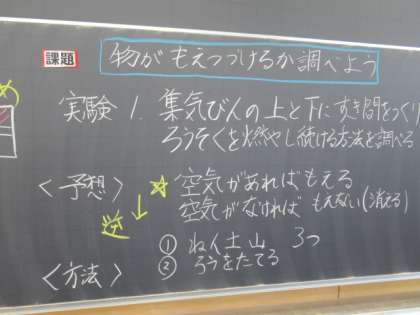 課題 物がもえつづけるか調べよう
実験 1. 集気びんの上と下にすき間をつくり
ろうそくを燃やし続ける方法を調べる
〈予想〉 ☆ 空気があればもえる
空気がなければ もえない(消える)
逆 ↓
① ねん土山 3つ
〈方法〉 ② ろうをたてる